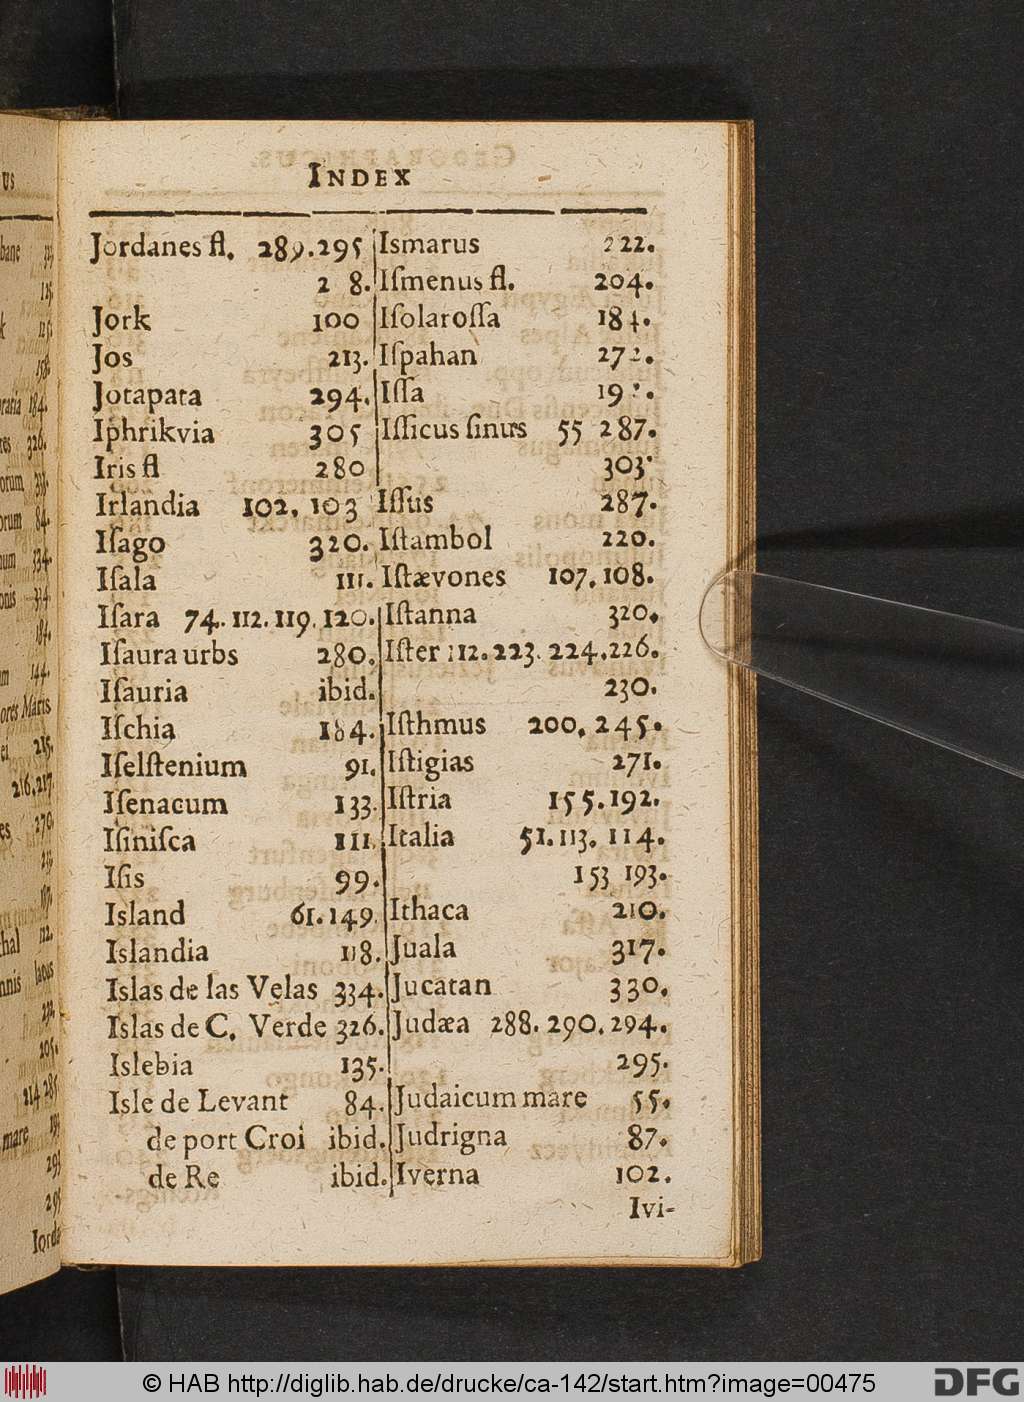 INDEX
Jordanes fl. 289.295
2 8.
Jork 100
Jos 213.
Jotapata 294.
Iphrikvia 305
Iris fl 280
Irlandia 102. 103
Iſago 320.
Iſala 111.
Iſara 74. 112. 119. 120.
Iſaura urbs 280.
Iſauria ibid.
Iſchia 184.
Iſelſtenium 91.
Iſenacum 133.
Iſiniſca 111.
Iſis 99.
Island 61.149.
Islandia 118.
Islas de las Velas 334.
Islas de C. Verde 326.
Islebia 135.
Isle de Levant 84.
de port Croi ibid.
de Re ibid.
Ismarus 222.
Iſmenus fl. 204.
Iſolaroſſa 184.
Iſpahan 272.
Iſſa
Iſſicus ſinus 55 287.
303.
Iſſus 287.
Iſtambol 220.
Iſtævones 107. 108.
Iſtanna 320.
Iſter 112. 223. 224.226.
230.
Iſthmus 200. 245.
Iſtigias 271.
Iſtria 155.192.
Italia 51. 113. 114.
153 193.
Ithaca 210.
Juala 317.
Jucatan 330.
Judæa 288. 290. 294.
295.
Judaicum mare 55.
Judrigna 87.
Iverna 102.
Ivi-
© HAB http://diglib.hab.de/drucke/ca-142/start.htm?image=00475
DFG